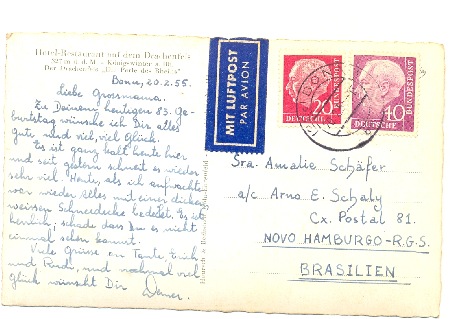 Hotel-Restaurant auf dem Drachenfels
Bonn, 20.2.55.
Liebe Grossmama.
Zu Deinem heutigen 83. Ge-
burtstag wünsche ich Dir alles
gute und viel, viel Glück.
Es ist ganz kalt heute hier
und seit gestern schneit es wieder
sehr viel. Heute, als ich aufwachte
war wieder Alles mit einer dicken
weissen Schneedecke bedeckt. Es ist
herrlich, schade dass Du es nicht
einmal sehen kannst.
Viele Grüsse an Tante, Erich
und Randi, und nochmal viel
Glück wünscht Dir
MIT LUFTPOST
PAR AVION
20
DEUTSCHE
BUNDESPOST
40
DEUTSCHE
BUNDESPOST
Sra. Amalie Schäfer
a/c Arno E. Schaly
Cx. Postal 81.
NOVO HAMBURGO-R.G.S.
BRASILIEN